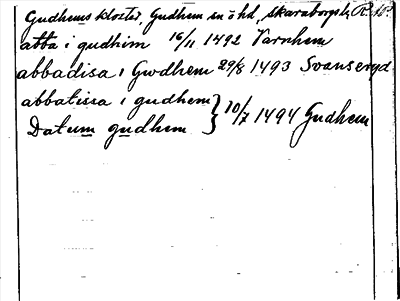 Gudhems kloster, Gudhem sn o hd, Skaraborgs l, R. Ap.
abba i gudhim 16/11 1492 Varnhem
abbadisa i Gwdhem 29/8 1493 Svansergd
abbatissa i gudhem } 10/7 1494 Gudhem
Datum gudhem